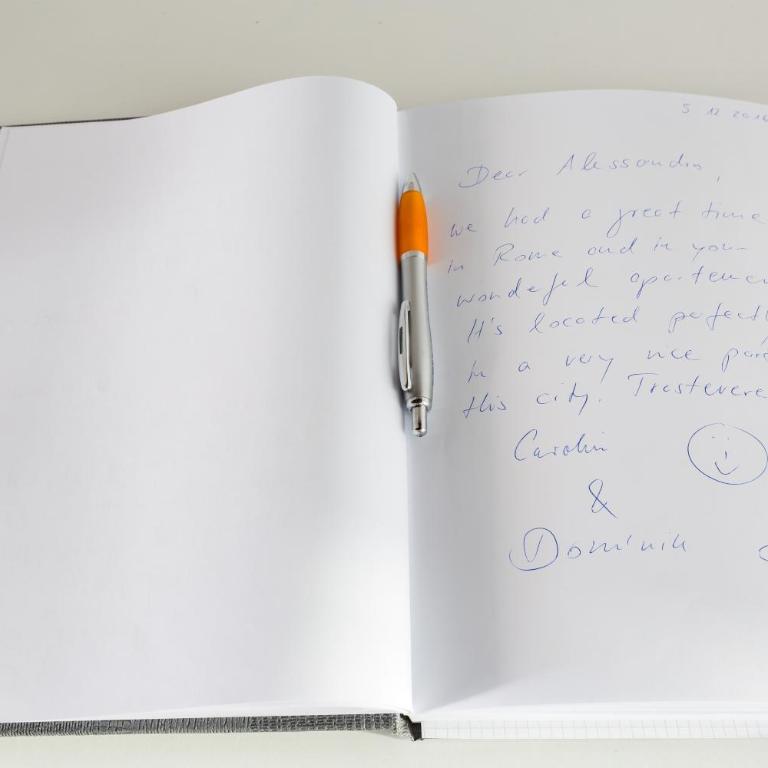 5 12 201
Dear Alessandro,
we had a great time
in Rome and in your
wondeful apartemen
It's located perfectl
in a very nice par
this city. Trastevere
Carolin
&
Dominik